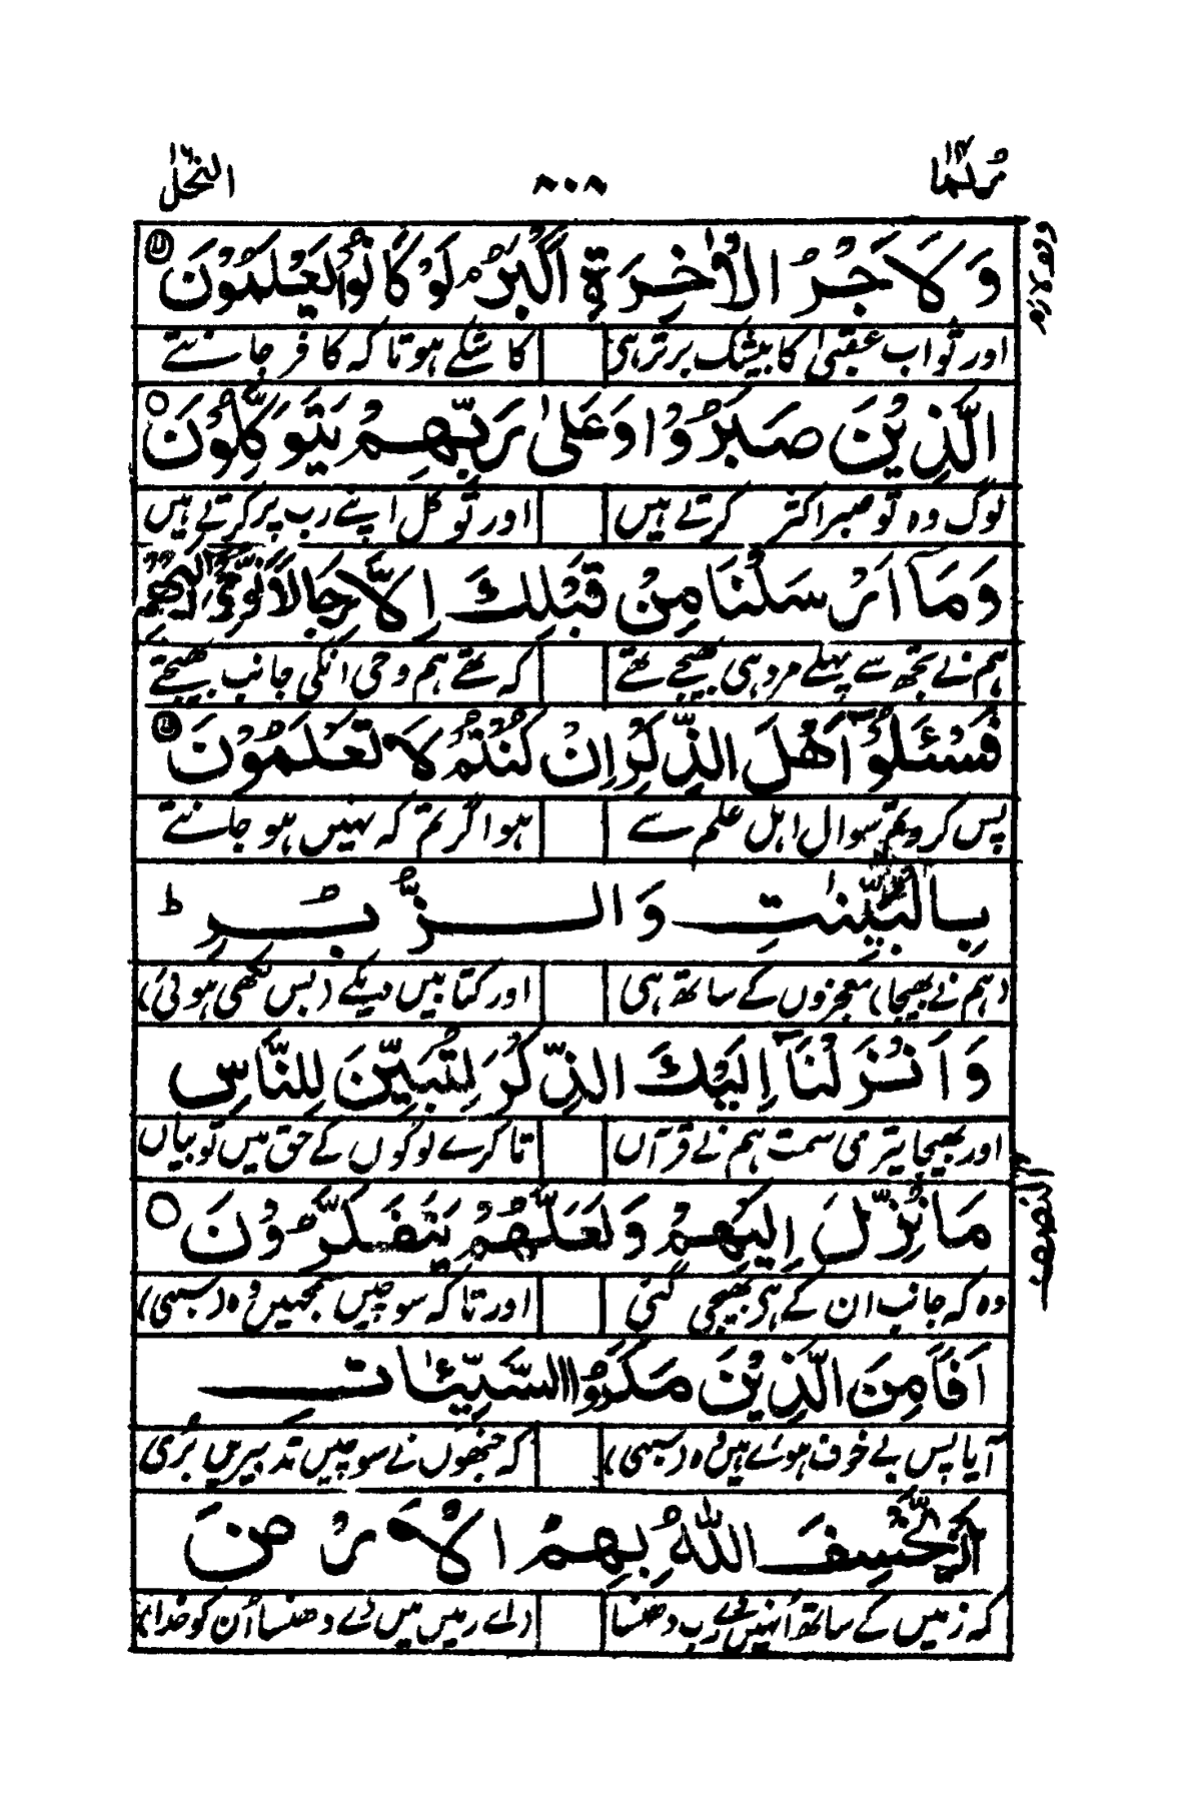 ربما ١٤
٨٠٨
النحل ١٦
وَلَاَجْرُ الْاٰخِرَةِ اَكْبَرُ ۘ لَوْ كَانُوْا يَعْلَمُوْنَ ۙ
اور ثواب عقبیٰ کا بیشک برتر ہی کا شکے ہوتا کہ کافر جانتے
الَّذِيْنَ صَبَرُوْا وَعَلٰى رَبِّهِمْ يَتَوَكَّلُوْنَ ○
لوگ وہ تو صبر اکثر کرتے ہیں اور توکل اپنے رب پر کرتے ہیں
وَمَآ اَرْسَلْنَا مِنْ قَبْلِكَ اِلَّا رِجَالًا نُّوْحِيْٓ اِلَيْهِمْ
ہم نے تجھ سے پہلے مرد ہی بھیجے تھے کہ تھے ہم وحی انکی جانب بھیجتے
فَسْـَٔلُوْٓا اَهْلَ الذِّكْرِ اِنْ كُنْتُمْ لَا تَعْلَمُوْنَ ۙ
پس کرو تم سوال اہل علم سے ہو اگر تم کہ نہیں ہو جانتے
بِالْبَيِّنٰتِ وَالزُّبُرِ ط
(ہم نے بھیجا) معجزوں کے ساتھ ہی اور کتابیں دیکے (بس لکھی ہوئی)
وَاَنْزَلْنَآ اِلَيْكَ الذِّكْرَ لِتُبَيِّنَ لِلنَّاسِ
اور بھیجا تیری سمت ہم نے قرآں تا کرے لوگوں کے حق میں تو بیاں
مَا نُزِّلَ اِلَيْهِمْ وَلَعَلَّهُمْ يَتَفَكَّرُوْنَ ○
وہ کہ جانب ان کے ہی بھیجی گئی اور تا کہ سوچیں سمجھیں وہ (سبھی)
النصف
اَفَاَمِنَ الَّذِيْنَ مَكَرُوا السَّيِّاٰتِ
آیا پس بے خوف ہوئے ہیں وہ (سبھی) کہ جنھوں نے سوچیں تدبیریں بُری
اَنْ يَّخْسِفَ اللّٰهُ بِهِمُ الْاَرْضَ
کہ زمیں کے ساتھ اُنہیں رب دھنسا (لے زمیں میں نے دھنسا اُن کو خدا)